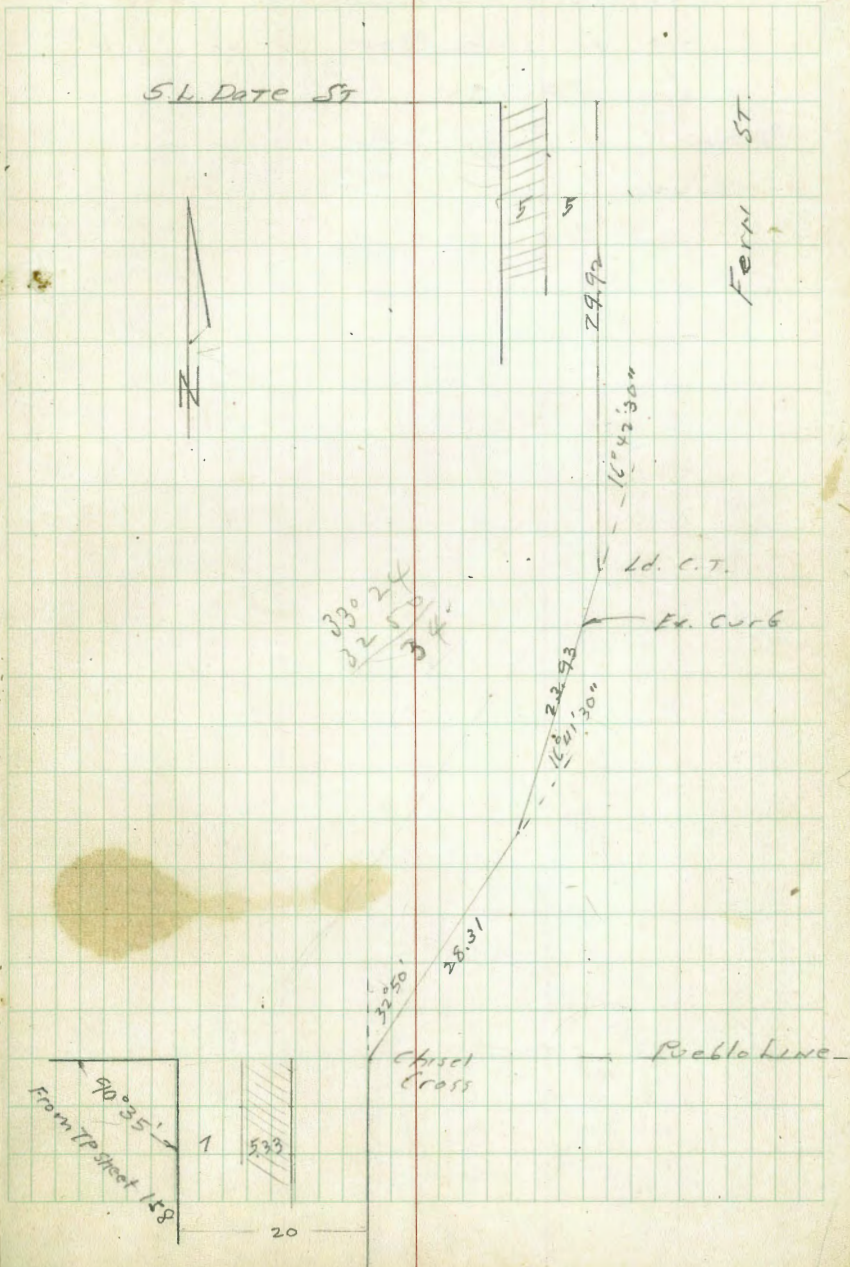 S.L. Date ST
Fern ST.
5 5
29.92
N
16° 42' 30"
Ld. C.T.
33° 24
32 50
34
Ex. Curb
23.93
16° 41' 30"
28.31
32° 50'
Chisel
Cross
Pueblo Line
90° 35'
From TP Sheet 158
5.33
20